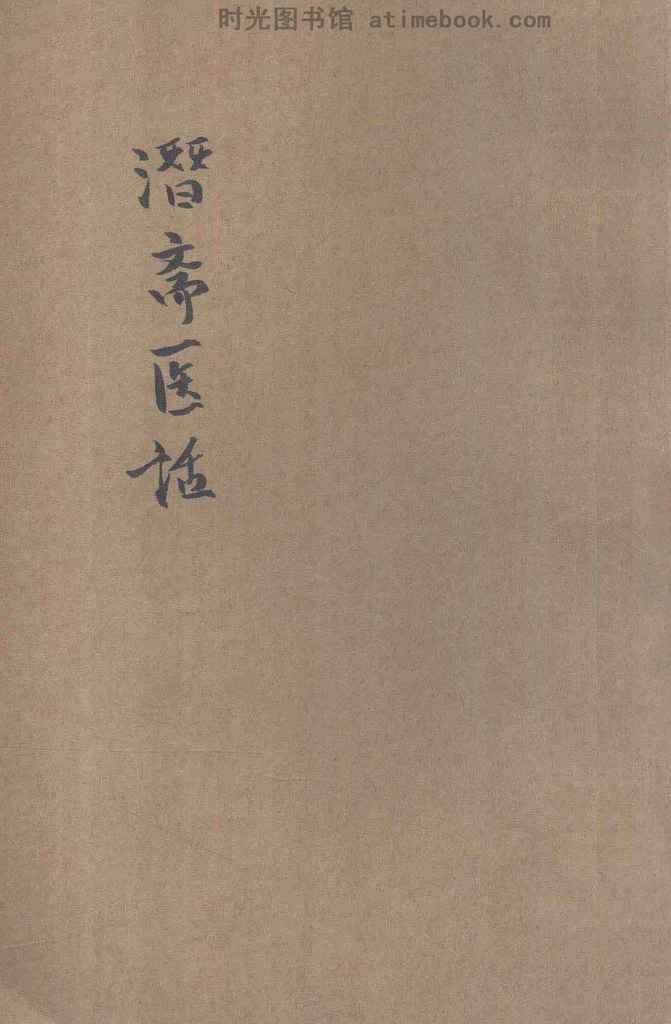 时光图书馆 atimebook.com
潛斋医话